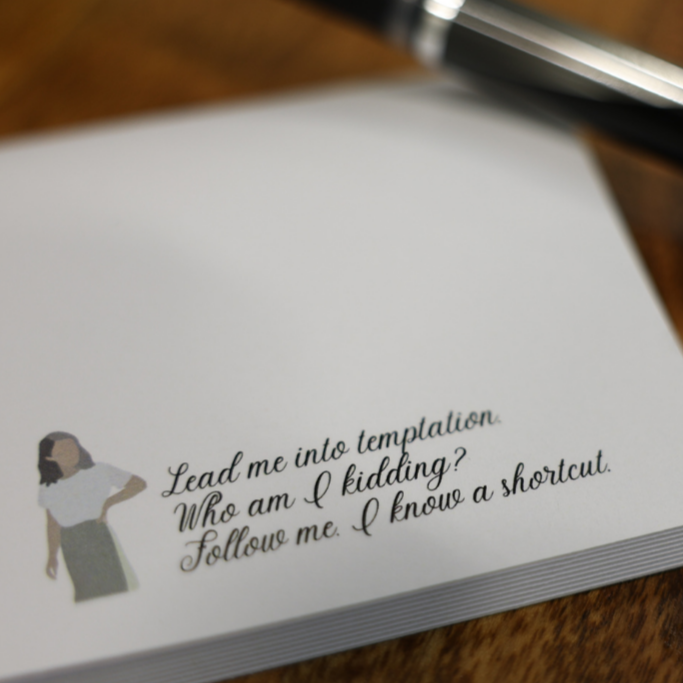 Lead me into temptation.
Who am I kidding?
Follow me. I know a shortcut.